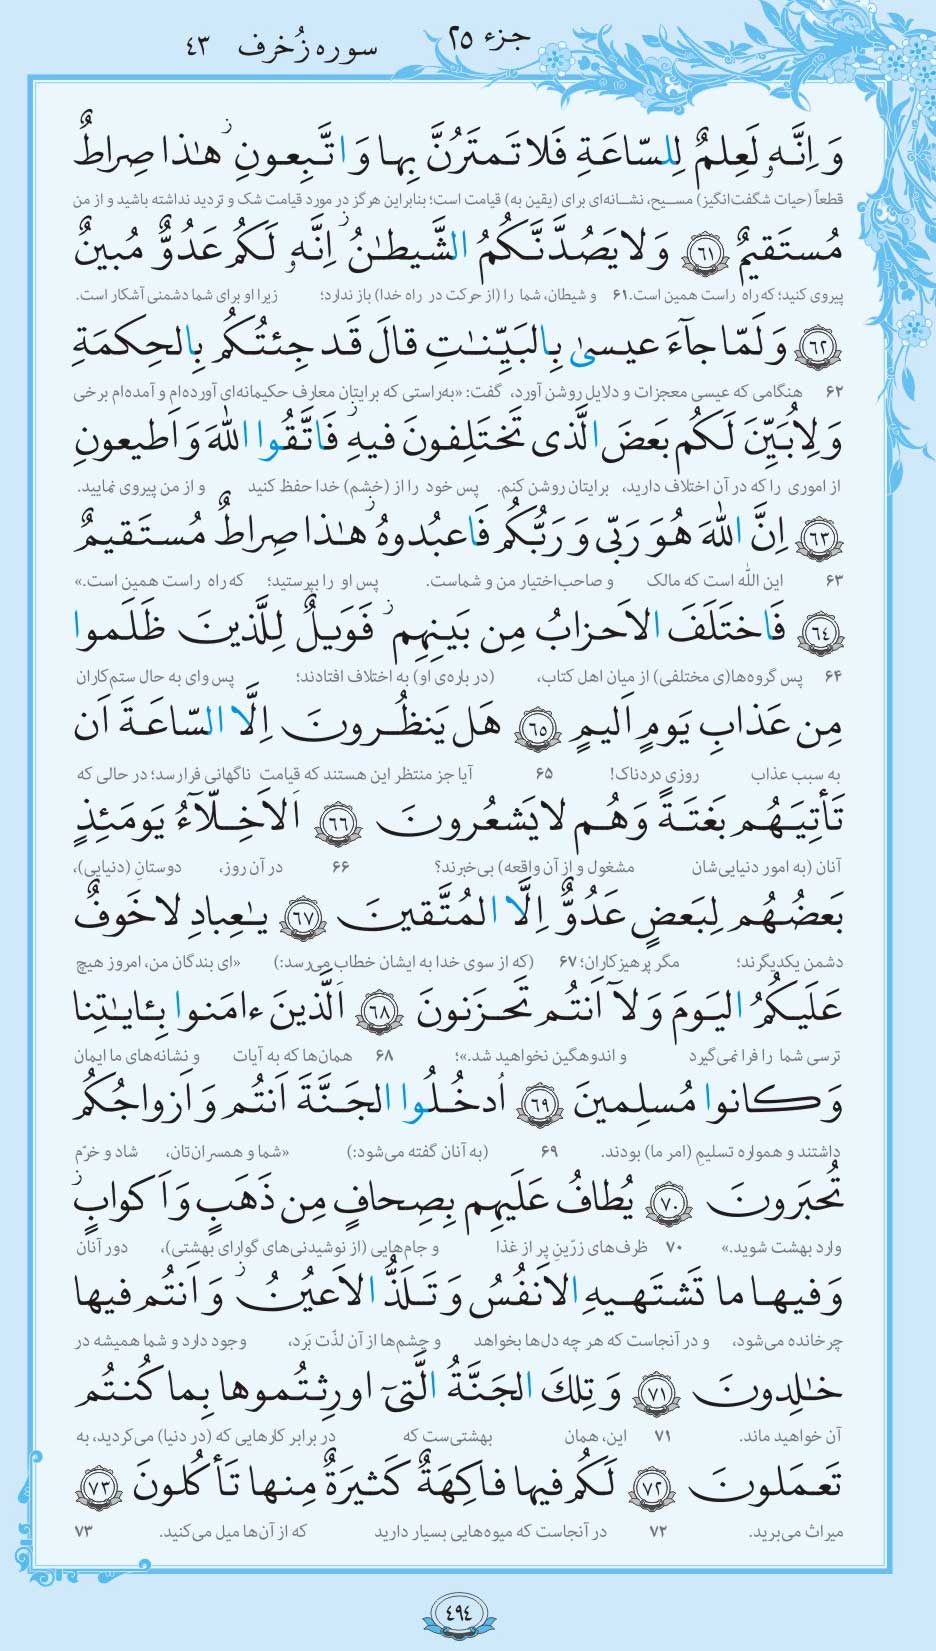 جزء ۲۵
سوره زُخرف ۴۳
وَ اِنَّهُ لَعِلمٌ لِلسّاعَةِ فَلا تَمتَرُنَّ بِها وَ اتَّبِعونِ ۚ هـٰذا صِراطٌ
قطعاً (حیات شگفت‌انگیز) مسیح، نشانه‌ای برای (یقین به) قیامت است؛ بنابراین هرگز در مورد قیامت شک و تردید نداشته باشید و از من
مُستَقیمٌ ﴿٦١﴾ وَ لا یَصُدَّنَّکُمُ الشَّیطـٰنُ ۖ اِنَّهُ لَکُم عَدُوٌّ مُبینٌ
پیروی کنید؛ که راه راست همین است. ۶۱ و شیطان، شما را (از حرکت در راه خدا) باز ندارد؛ زیرا او برای شما دشمنی آشکار است.
﴿٦٢﴾ وَ لَمّا جآءَ عیسیٰ بِالبَیِّنـٰتِ قالَ قَد جِئتُکُم بِالحِکمَةِ
۶۲ هنگامی که عیسی معجزات و دلایل روشن آورد، گفت: «به‌راستی که برایتان معارف حکیمانه‌ای آورده‌ام و آمده‌ام برخی
وَ لِاُبَیِّنَ لَکُم بَعضَ الَّذی تَختَلِفونَ فیهِ ۖ فَاتَّقُوا اللّٰهَ وَ اَطیعونِ
از اموری را که در آن اختلاف دارید، برایتان روشن کنم. پس خود را از (خشم) خدا حفظ کنید و از من پیروی نمایید.
﴿٦٣﴾ اِنَّ اللّٰهَ هُوَ رَبّی وَ رَبُّکُم فَاعبُدوهُ ۚ هـٰذا صِراطٌ مُستَقیمٌ
۶۳ این الله است که مالک و صاحب‌اختیار من و شماست. پس او را بپرستید؛ که راه راست همین است.»
﴿٦٤﴾ فَاختَلَفَ الاَحزابُ مِن بَینِهِم ۖ فَوَیلٌ لِلَّذینَ ظَلَموا
۶۴ پس گروه‌ها(ی مختلفی) از میان اهل کتاب، (در باره‌ی او) به اختلاف افتادند؛ پس وای به حال ستم‌کاران
مِن عَذابِ یَومٍ اَلیمٍ ﴿٦٥﴾ هَل یَنظُرونَ اِلَّا السّاعَةَ اَن
به سبب عذاب روزی دردناک! ۶۵ آیا جز منتظر این هستند که قیامت ناگهانی فرارسد؛ در حالی که
تَأتِیَهُم بَغتَةً وَ هُم لا یَشعُرونَ ﴿٦٦﴾ اَلاَخِلّآءُ یَومَئِذٍ
آنان (به امور دنیایی‌شان مشغول و از آن واقعه) بی‌خبرند؟ ۶۶ در آن روز، دوستانِ (دنیایی)،
بَعضُهُم لِبَعضٍ عَدُوٌّ اِلَّا المُتَّقینَ ﴿٦٧﴾ یـٰعِبادِ لا خَوفٌ
دشمن یکدیگرند؛ مگر پرهیزکاران؛ ۶۷ (که از سوی خدا به ایشان خطاب می‌رسد:) «ای بندگان من، امروز هیچ
عَلَیکُمُ الیَومَ وَ لآ اَنتُم تَحزَنونَ ﴿٦٨﴾ اَلَّذینَ ءامَنوا بِـٔایـٰتِنا
ترسی شما را فرا نمی‌گیرد و اندوهگین نخواهید شد.»؛ ۶۸ همان‌ها که به آیات و نشانه‌های ما ایمان
وَ کانوا مُسلِمینَ ﴿٦٩﴾ اُدخُلُوا الجَنَّةَ اَنتُم وَ اَزواجُکُم
داشتند و همواره تسلیمِ (امر ما) بودند. ۶۹ (به آنان گفته می‌شود:) «شما و همسران‌تان، شاد و خرّم
تُحبَرونَ ﴿٧٠﴾ یُطافُ عَلَیهِم بِصِحافٍ مِن ذَهَبٍ وَ اَکوابٍ ۖ
وارد بهشت شوید.» ۷۰ ظرف‌های زرّینِ پر از غذا و جام‌هایی (از نوشیدنی‌های گوارای بهشتی)، دور آنان
وَ فیها ما تَشتَهیهِ الاَنفُسُ وَ تَلَذُّ الاَعیُنُ ۖ وَ اَنتُم فیها
چرخانده می‌شود، و در آنجاست که هر چه دل‌ها بخواهد و چشم‌ها از آن لذّت بَرد، وجود دارد و شما همیشه در
خـٰلِدونَ ﴿٧١﴾ وَ تِلکَ الجَنَّةُ الَّتیٓ اورِثتُموها بِما کُنتُم
آن خواهید ماند. ۷۱ این، همان بهشتی‌ست که در برابر کارهایی که (در دنیا) می‌کردید، به
تَعمَلونَ ﴿٧٢﴾ لَکُم فیها فاکِهَةٌ کَثیرَةٌ مِنها تَأکُلونَ ﴿٧٣﴾
میراث می‌برید. ۷۲ در آنجاست که میوه‌هایی بسیار دارید که از آن‌ها میل می‌کنید. ۷۳
۴۹۴